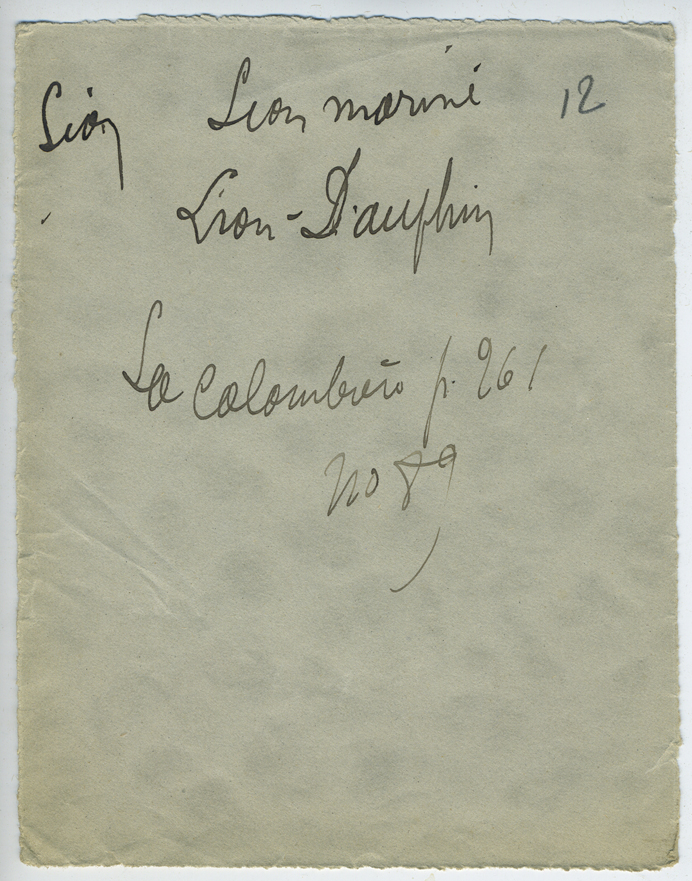 Lion Lion mariné 12
Lion-Dauphin
La Colombière p. 261
no 89